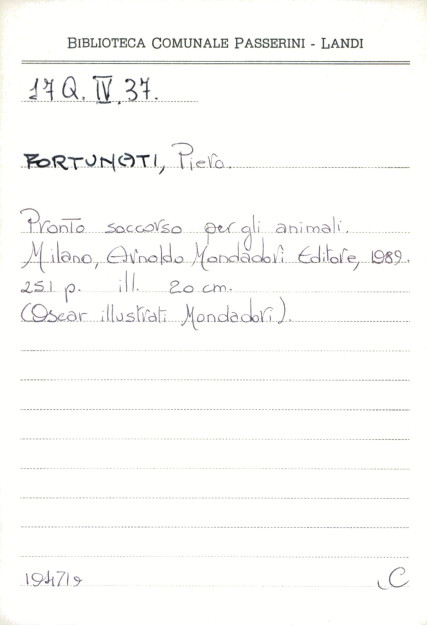 BIBLIOTECA COMUNALE PASSERINI - LANDI
17 Q. IV. 37.
FORTUNATI, Piero.
Pronto soccorso per gli animali.
Milano, Arnoldo Mondadori Editore, 1989.
251 p. ill. 20 cm.
(Oscar illustrati Mondadori).
C